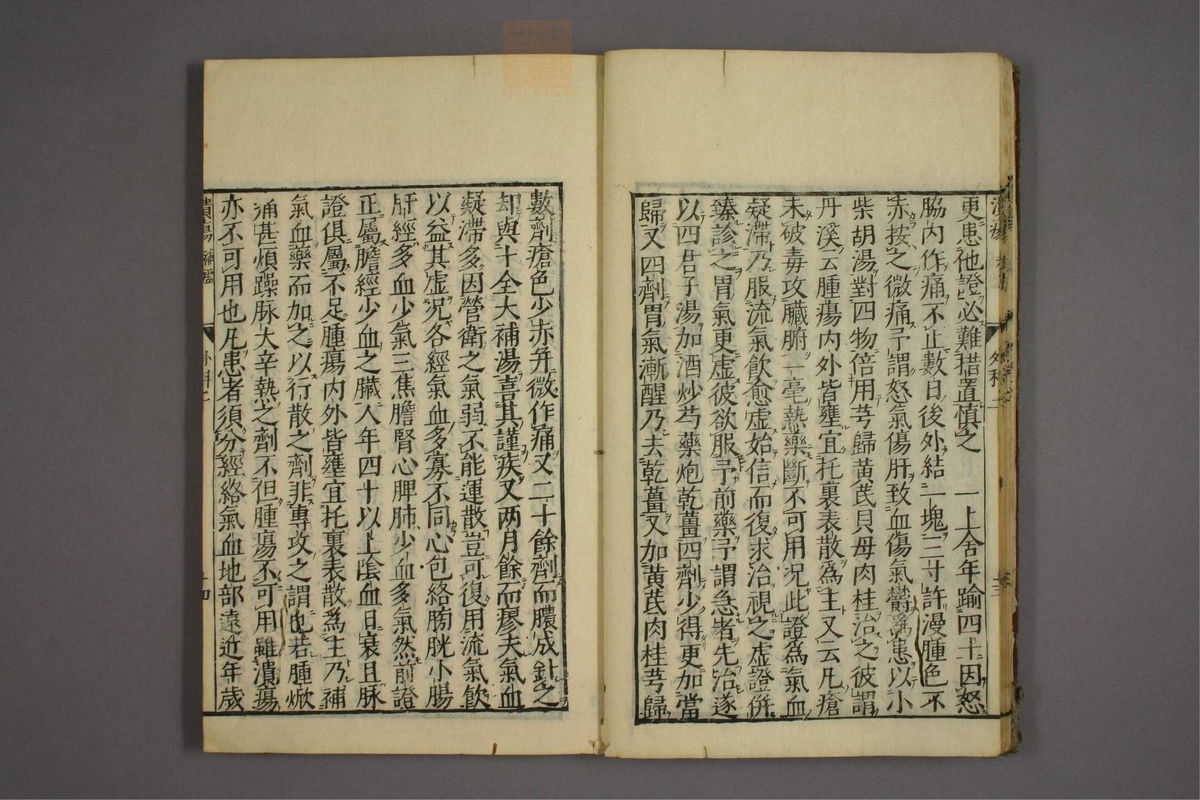 更患他證必難措置慎之　一上舍年踰四十因怒
脇内作痛不止數日後外結一塊三寸許漫腫色不
赤按之微痛予謂怒氣傷肝致血傷氣欝爲患以小
柴胡湯對四物倍用芎歸黃芪貝母肉桂治之彼謂
丹溪云腫瘍内外皆壅宜托裏表散為主又云凡瘡
未破毒攻臟腑一毫熱藥斷不可用况此證爲氣血
凝滯乃服流氣飲愈虚始信而復求治視之虚證併
臻診之胃氣更虚彼欲服予前藥予謂急者先治遂
以四君子湯加酒炒芍藥炮乾薑四劑少得更加當
歸又四劑胃氣漸醒乃去乾薑又加黃芪肉桂芎歸
數劑瘡色少赤并微作痛又二十餘劑而膿成針之
却與十全大補湯喜其謹疾又两月餘而瘳夫氣血
凝滯多因營衛之氣弱不能運散豈可復用流氣飲
以益其虚况各經氣血多寡不同心包絡膀胱小腸
肝經多血少氣三焦膽腎心脾肺少血多氣然前證
正屬膽經少血之臟人年四十以上陰血日衰且脉
證俱屬不足腫瘍内外皆壅宜托裏表散爲主乃補
氣血藥而加之以行散之劑非專攻之謂也若腫焮
痛甚煩躁脉大辛熱之劑不但腫瘍不可用雖潰瘍
亦不可用也凡患者須分經絡氣血地部遠近年歲